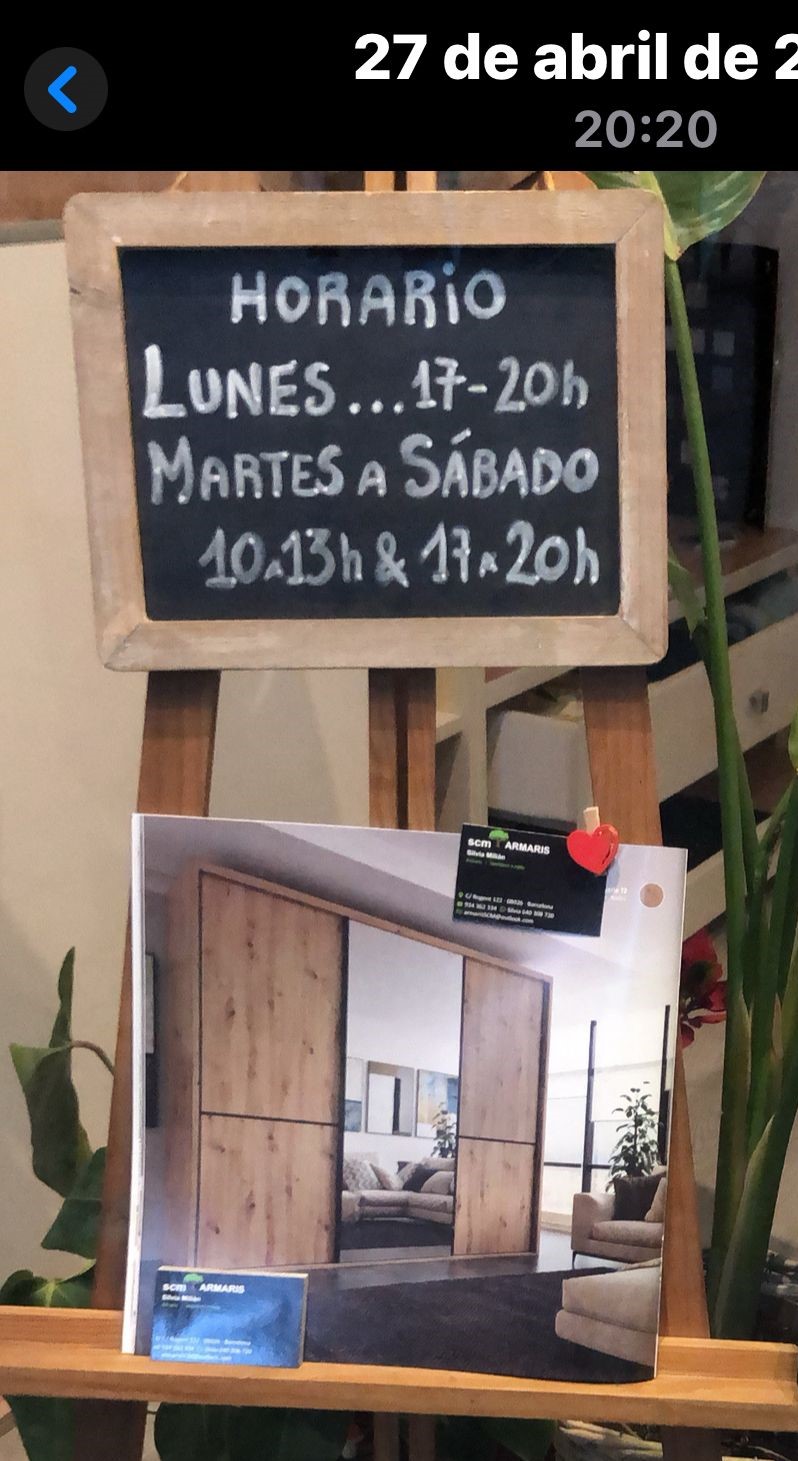 27 de abril de 2
20:20
HORARiO
LUNES...17-20h
MARTES A SÁBADO
10A13h & 17A20h
scm ARMARIS
Silvia Milián
C/ Rogent 122 · 08026 · Barcelona
934 362 334 Silvia 640 308 720
armarisSCM@outlook.com
scm ARMARIS
Silvia Milián